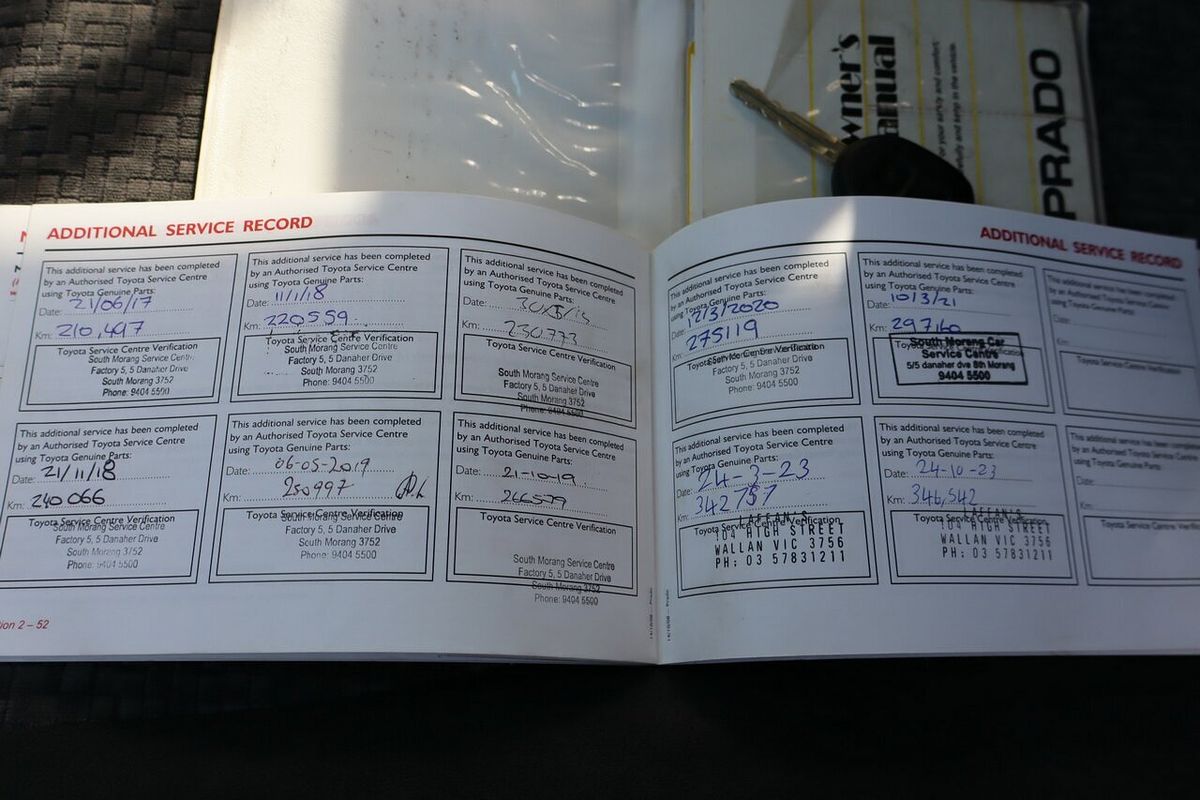 wner's
anual
for your service and comfort
PRADO
ADDITIONAL SERVICE RECORD
This additional service has been completed
by an Authorised Toyota Service Centre
using Toyota Genuine Parts:
Date: 21/06/17
Km: 210,497
Toyota Service Centre Verification
South Morang Service Centre
Factory 5, 5 Danaher Drive
South Morang 3752
Phone: 9404 5500
This additional service has been completed
by an Authorised Toyota Service Centre
using Toyota Genuine Parts:
Date: 11/1/18
Km: 220559
Toyota Service Centre Verification
South Morang Service Centre
Factory 5, 5 Danaher Drive
South Morang 3752
Phone: 9404 5500
This additional service has been completed
by an Authorised Toyota Service Centre
using Toyota Genuine Parts:
Date:
Km: 230773
Toyota Service Centre Verification
South Morang Service Centre
Factory 5, 5 Danaher Drive
South Morang 3752
Phone: 9404 5500
This additional service has been completed
by an Authorised Toyota Service Centre
using Toyota Genuine Parts:
Date: 21/11/18
Km: 240066
Toyota Service Centre Verification
South Morang Service Centre
Factory 5, 5 Danaher Drive
South Morang 3752
Phone: 9404 5500
This additional service has been completed
by an Authorised Toyota Service Centre
using Toyota Genuine Parts:
Date: 06-05-2019
Km: 250997
Toyota Service Centre Verification
South Morang Service Centre
Factory 5, 5 Danaher Drive
South Morang 3752
Phone: 9404 5500
This additional service has been completed
by an Authorised Toyota Service Centre
using Toyota Genuine Parts:
Date: 21-10-19
Km: 266579
Toyota Service Centre Verification
South Morang Service Centre
Factory 5, 5 Danaher Drive
South Morang 3752
Phone: 9404 5500
ion 2 – 52
ADDITIONAL SERVICE RECORD
This additional service has been completed
by an Authorised Toyota Service Centre
using Toyota Genuine Parts:
Date: 12/3/2020
Km: 275119
Toyota Service Centre Verification
South Morang Service Centre
Factory 5, 5 Danaher Drive
South Morang 3752
Phone: 9404 5500
This additional service has been completed
by an Authorised Toyota Service Centre
using Toyota Genuine Parts:
Date: 10/3/21
Km: 297160
South Morang Car
Service Centre
5/5 danaher dve Sth Morang
9404 5500
This additional service has been completed
by an Authorised Toyota Service Centre
using Toyota Genuine Parts:
Date:
Km:
Toyota Service Centre Verification
This additional service has been completed
by an Authorised Toyota Service Centre
using Toyota Genuine Parts:
Date: 24-3-23
Km: 342757
Toyota Service Centre Verification
LAFFAN'S
104 HIGH STREET
WALLAN VIC 3756
PH: 03 57831211
This additional service has been completed
by an Authorised Toyota Service Centre
using Toyota Genuine Parts:
Date: 24-10-23
Km: 346,542
Toyota Service Centre Verification
LAFFAN'S
104 HIGH STREET
WALLAN VIC 3756
PH: 03 57831211
This additional service has been completed
by an Authorised Toyota Service Centre
using Toyota Genuine Parts:
Date:
Km:
Toyota Service Centre Verification